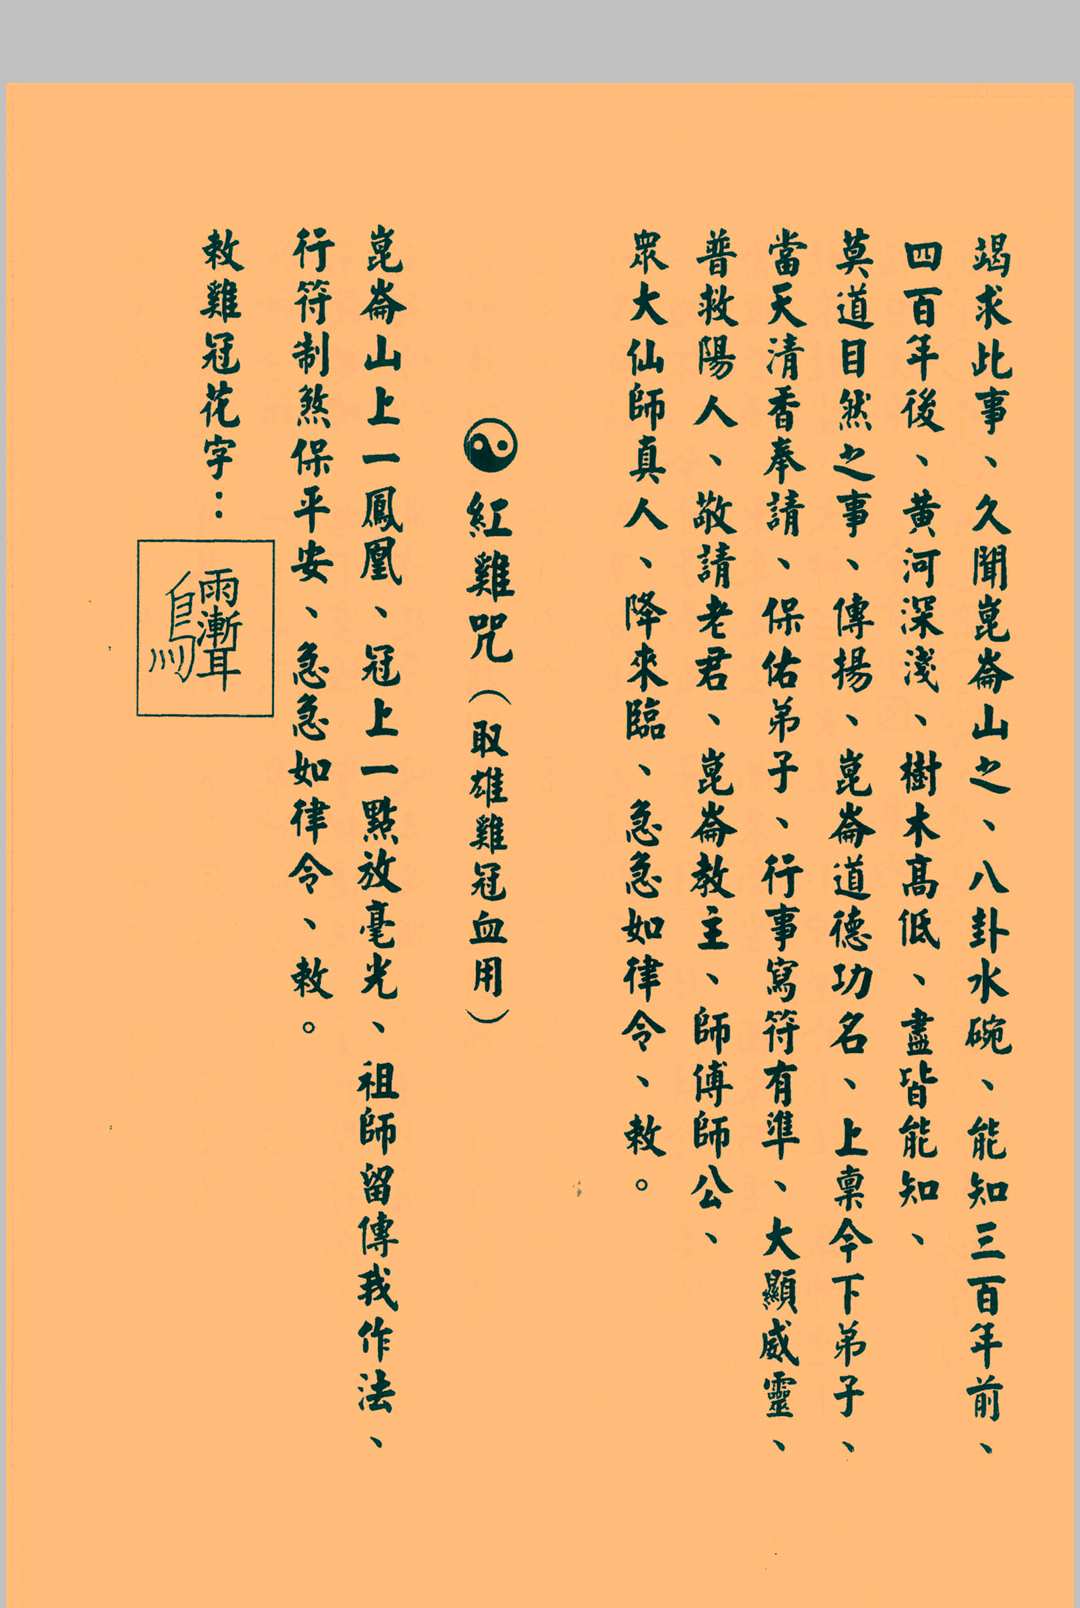 竭求此事、久聞崑崙山之、八卦水碗、能知三百年前、
四百年後、黃河深淺、樹木高低、盡皆能知、
莫道目然之事、傳揚、崑崙道德功名、上稟今下弟子、
當天清香奉請、保佑弟子、行事寫符有準、大顯威靈、
普救陽人、敬請老君、崑崙教主、師傅師公、
眾大仙師真人、降來臨、急急如律令、敕。
紅雞咒（取雄雞冠血用）
崑崙山上一鳳凰、冠上一點放毫光、祖師留傳我作法、
行符制煞保平安、急急如律令、敕。
敕雞冠花字：